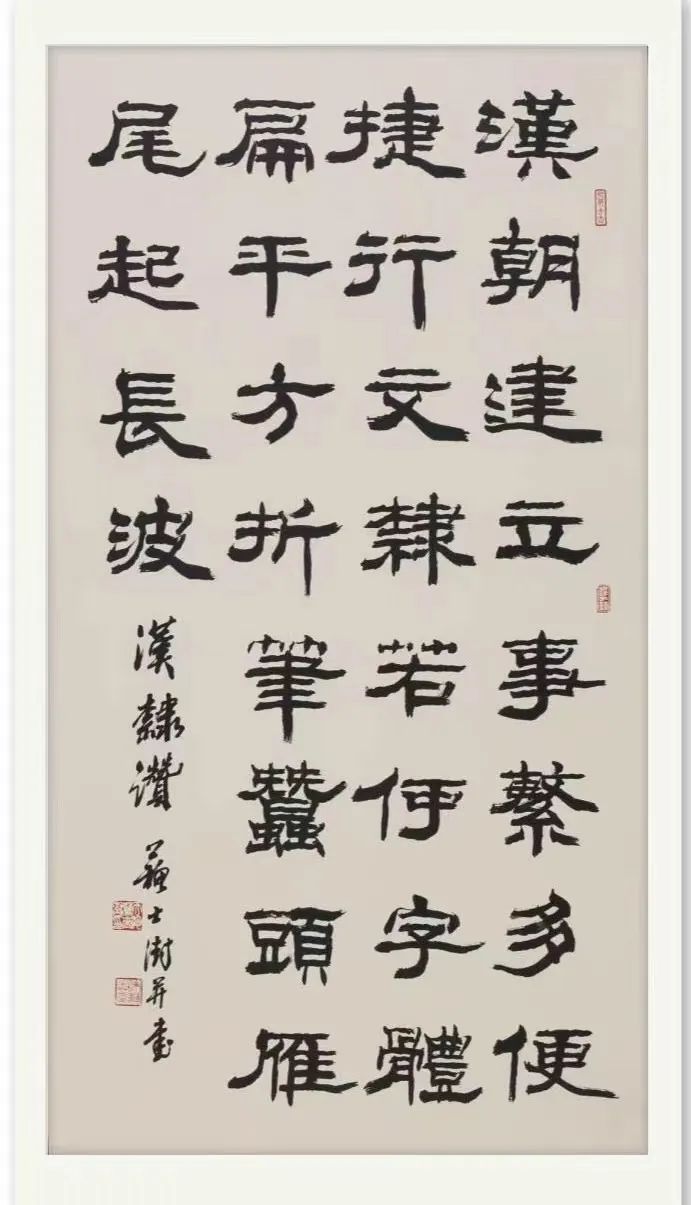 漢朝建立事繁多便
捷行文隸若何字體
扁平方折筆蠶頭雁
尾起長波
漢隸讚 蘇士澍并書